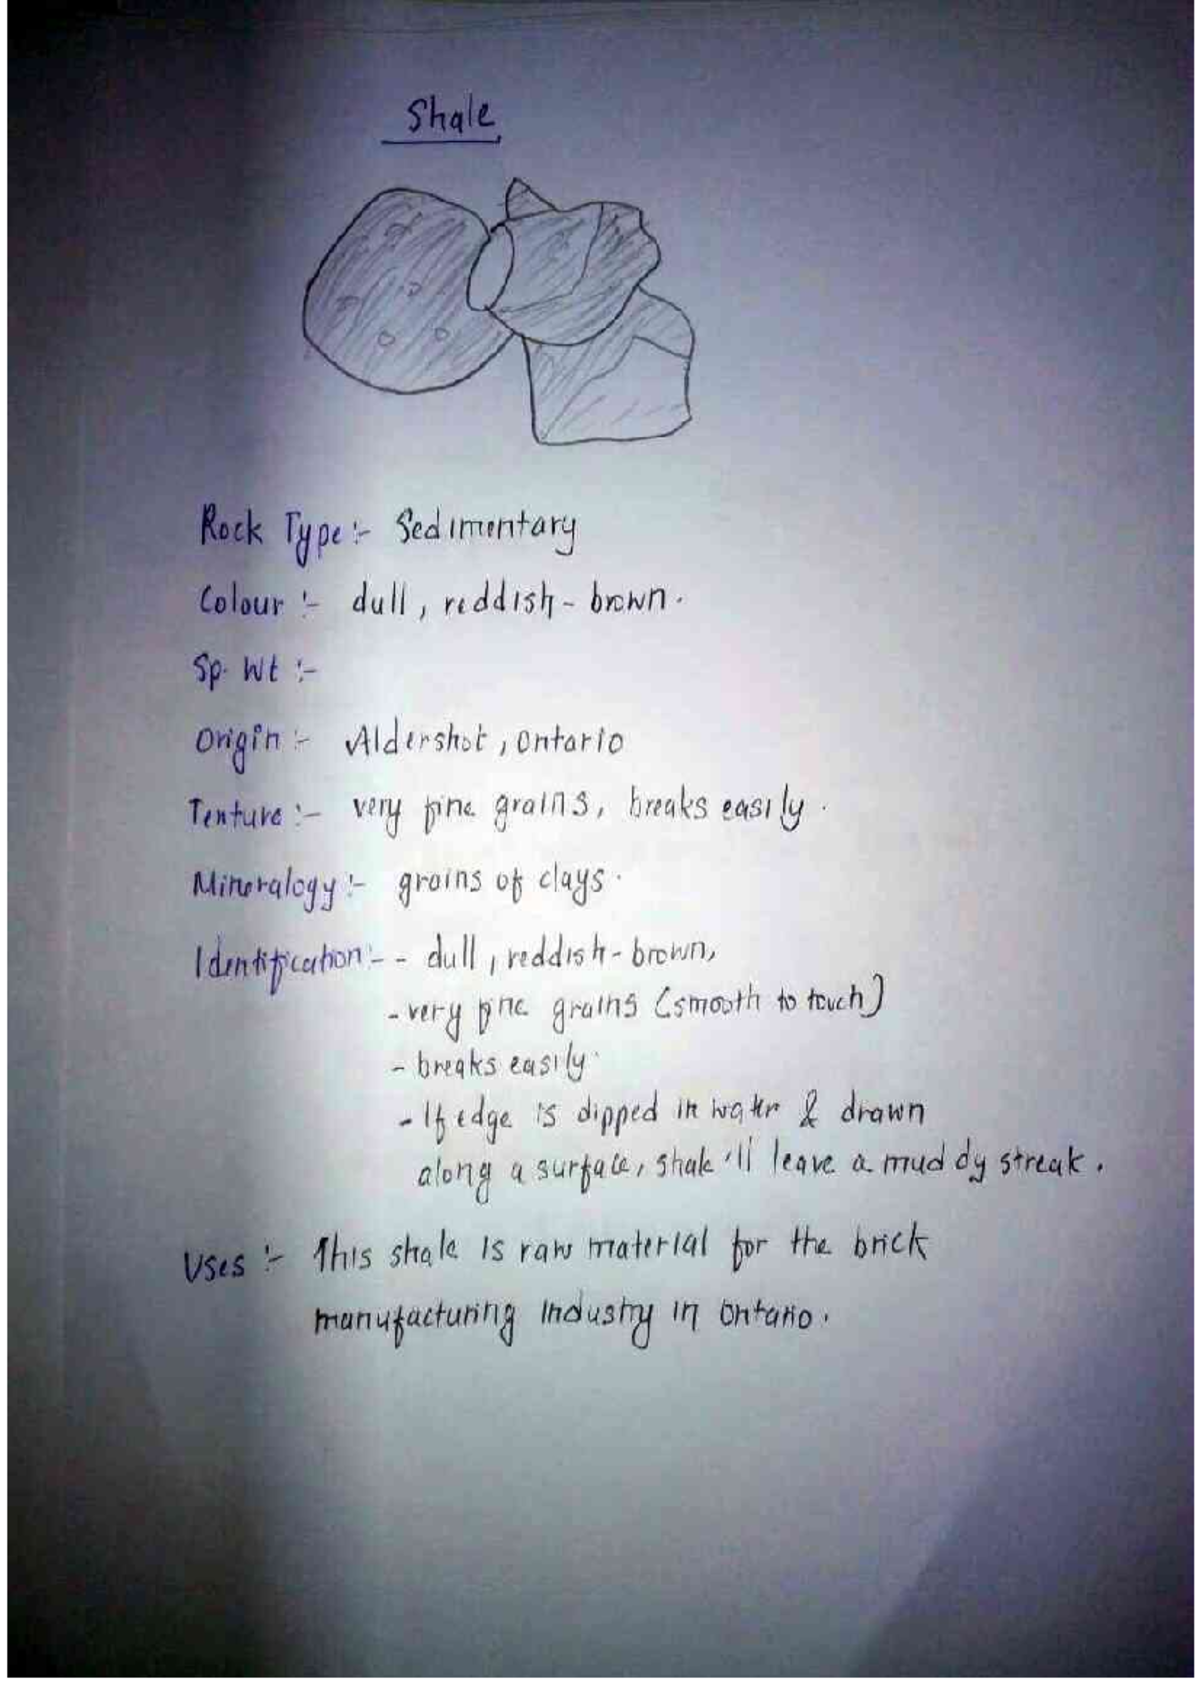 Shale
Rock Type :- Sedimentary
Colour :- dull, reddish-brown.
Sp. Wt :-
Origin :- Aldershot, Ontario
Tenture :- very fine grains, breaks easily.
Mineralogy :- grains of clays.
Identification :- - dull, reddish-brown,
- very fine grains (smooth to touch)
- breaks easily.
- If edge is dipped in water & drawn
along a surface, shale 'll leave a muddy streak.
Uses :- This shale is raw material for the brick
manufacturing industry in Ontario.